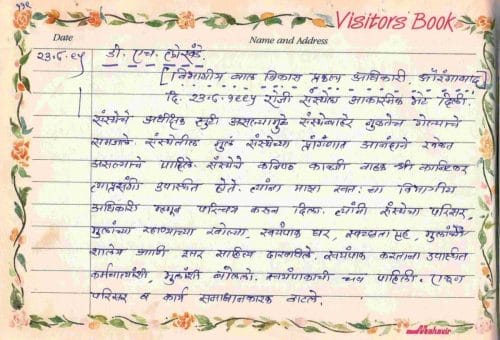 ११९
Visitors Book
Date Name and Address
२३.८.९५ डी. एच.
[विभागीय बाल विकास प्रकल्प अधिकारी, औरंगाबाद]
दि. २३.८.१९९५ रोजी संस्थेस आकस्मिक भेट दिली.
संस्थेचे अधीक्षक सुटी असल्यामुळे संस्थेबाहेर गेल्याचे
समजले. संस्थेतील मुलं संस्थेच्या प्रांगणात आनंदाने खेळत
असल्याचे पाहिले. संस्थेचे कनिष्ठ काळजी वाहक श्री
त्याप्रसंगी उपस्थित होते. त्यांना माझा स्वतःचा विभागीय
अधिकारी म्हणून परिचय करून दिला. त्यांनी संस्थेचा परिसर,
मुलांच्या रहाण्याच्या खोल्या, स्वयंपाक घर, स्वच्छता गृह, मुलांचे
शालेय आणि इतर साहित्य दाखविले. स्वयंपाक करताना उपस्थित
कर्मचाऱ्यांशी, मुलांशी बोललो. स्वयंपाकाची चव पाहिली. एकूण
परिसर व कार्य समाधानकारक वाटले.
Mahavir